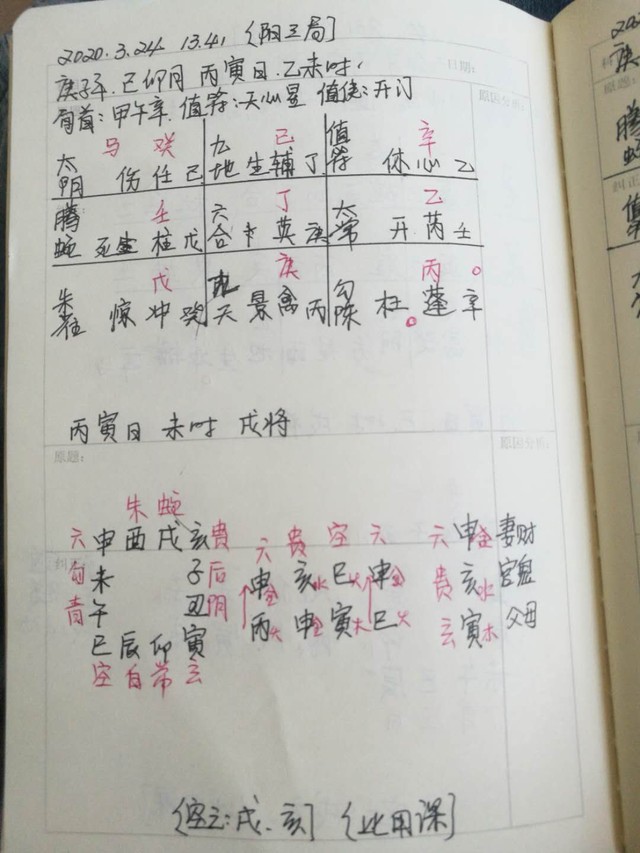 2020.3.24. 13.41 (阳三局]
庚子年.己卯月 丙寅日.乙未时,
日期:
旬首:甲午辛.值符:天心星 值使:开门
原因分析:
马 癸 九 己 值 辛
太阴 伤 任 己 地 生 辅 丁 符 休 心 乙
腾蛇 壬 六 丁 太 乙
死 柱 戊 合 英 庚 常 开 芮 壬
朱雀 戊 九 庚 勾 丙
惊 冲 癸 天 景 禽 丙 陈 杜 蓬 辛
丙寅日 未时 戌将
原题:
原因分析:
朱 蛇
六 申 酉 戌 亥 贵 六 贵 空 六 六 申金 妻财
勾 未 子 后 申金 亥水 巳火 申金 贵 亥水 官鬼
青 午 丑 阴 丙火 申金 寅木 巳火 玄 寅木 父母
巳 辰 卯 寅
空 白 常 玄
(空亡:戌.亥] (此用课]